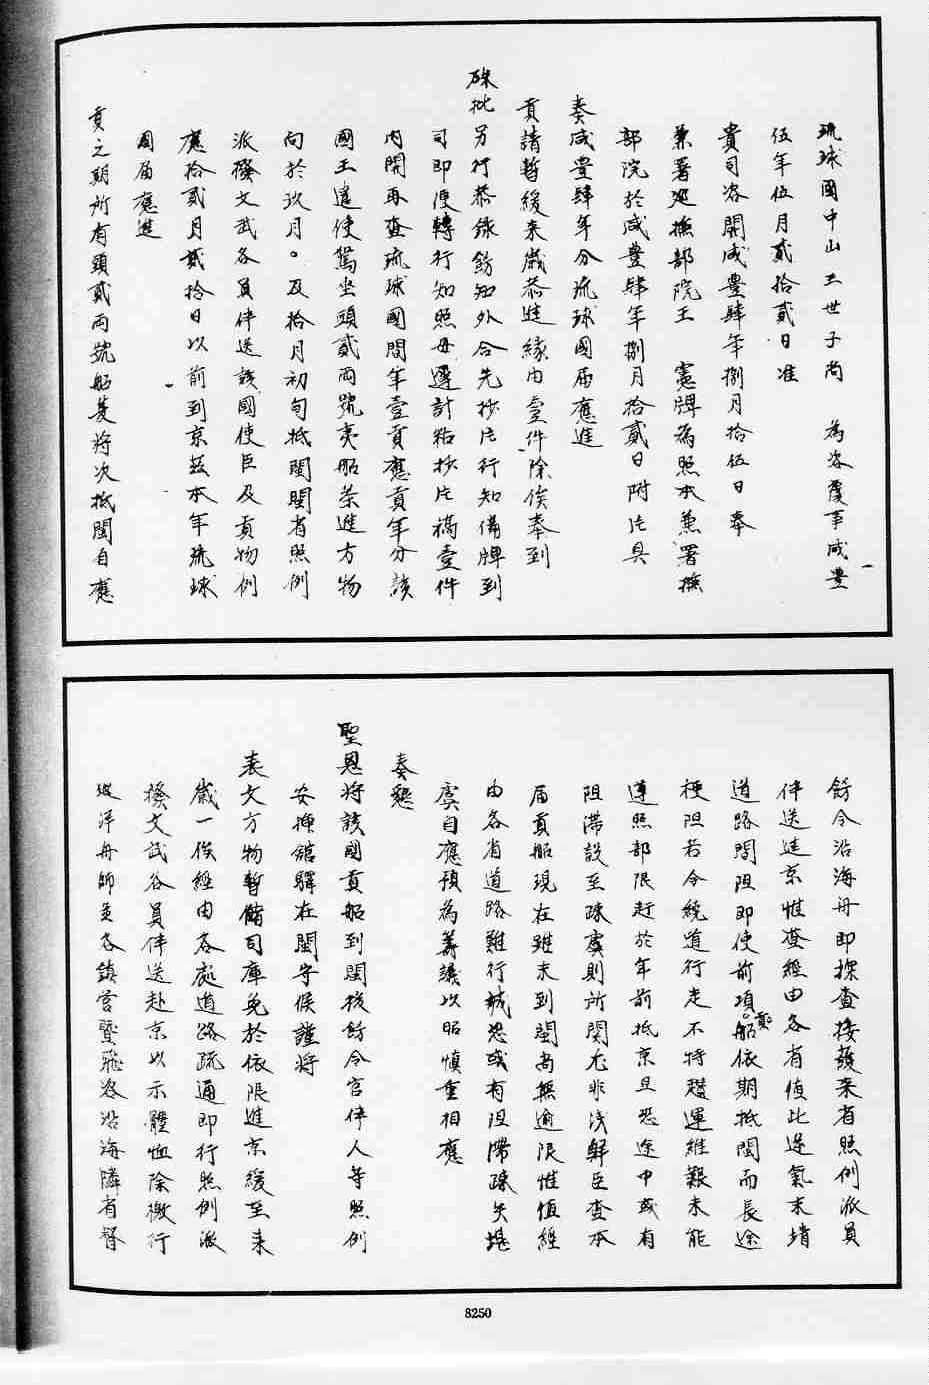 琉球國中山王世子尚　為咨覆事咸豐
伍年伍月貳拾貳日准
貴司咨開咸豐肆年捌月拾伍日奉
兼署廵撫部院王　憲牌為照本兼署撫
部院於咸豐肆年捌月拾貳日附片具
奏咸豐肆年分琉球國届應進
貢請暫緩来歲恭進緣由壹件除俟奉到
硃批另行恭錄飭知外合先抄片行知備牌到
司即便轉行知照毋違計粘抄片稿壹件
内開再查琉球國間年壹貢應貢年分該
國王遣使駕坐頭貳両號夷船茶進方物
向於玖月。及拾月初旬抵閩閩省照例
派撥文武各員伴送該國使臣及貢物例
應拾貳月貳拾日以前到京茲本年琉球
國届應進
貢之期所有頭貳両號船隻將次抵閩自應
飭令沿海舟即探查接護来省照例派員
伴送進京惟查經由各省值此逆氣未靖
道路間阻即使前項。貢船依期抵閩而長途
梗阻若令繞道行走不特趲運維艱未能
遵照部限赶於年前抵京且恐途中或有
阻滞設至疎虞則所関尤非浅鮮臣查本
届貢船現在雖未到閩尚無逾限惟值經
由各省道路難行誠恐或有阻滞疎失堪
虞自應預為籌議以昭慎重相應
奏懇
聖恩將該國貢船到閩後飭令官伴人等照例
安揷舘驛在閩守候謹將
表文方物暫儲司庫免於依限進京緩至来
歲一俟經由各處道路疏通即行照例派
撥文武各員伴送赴京以示體恤除檄行
坡洋舟師並各鎮營暨飛咨沿海隣省督
8250